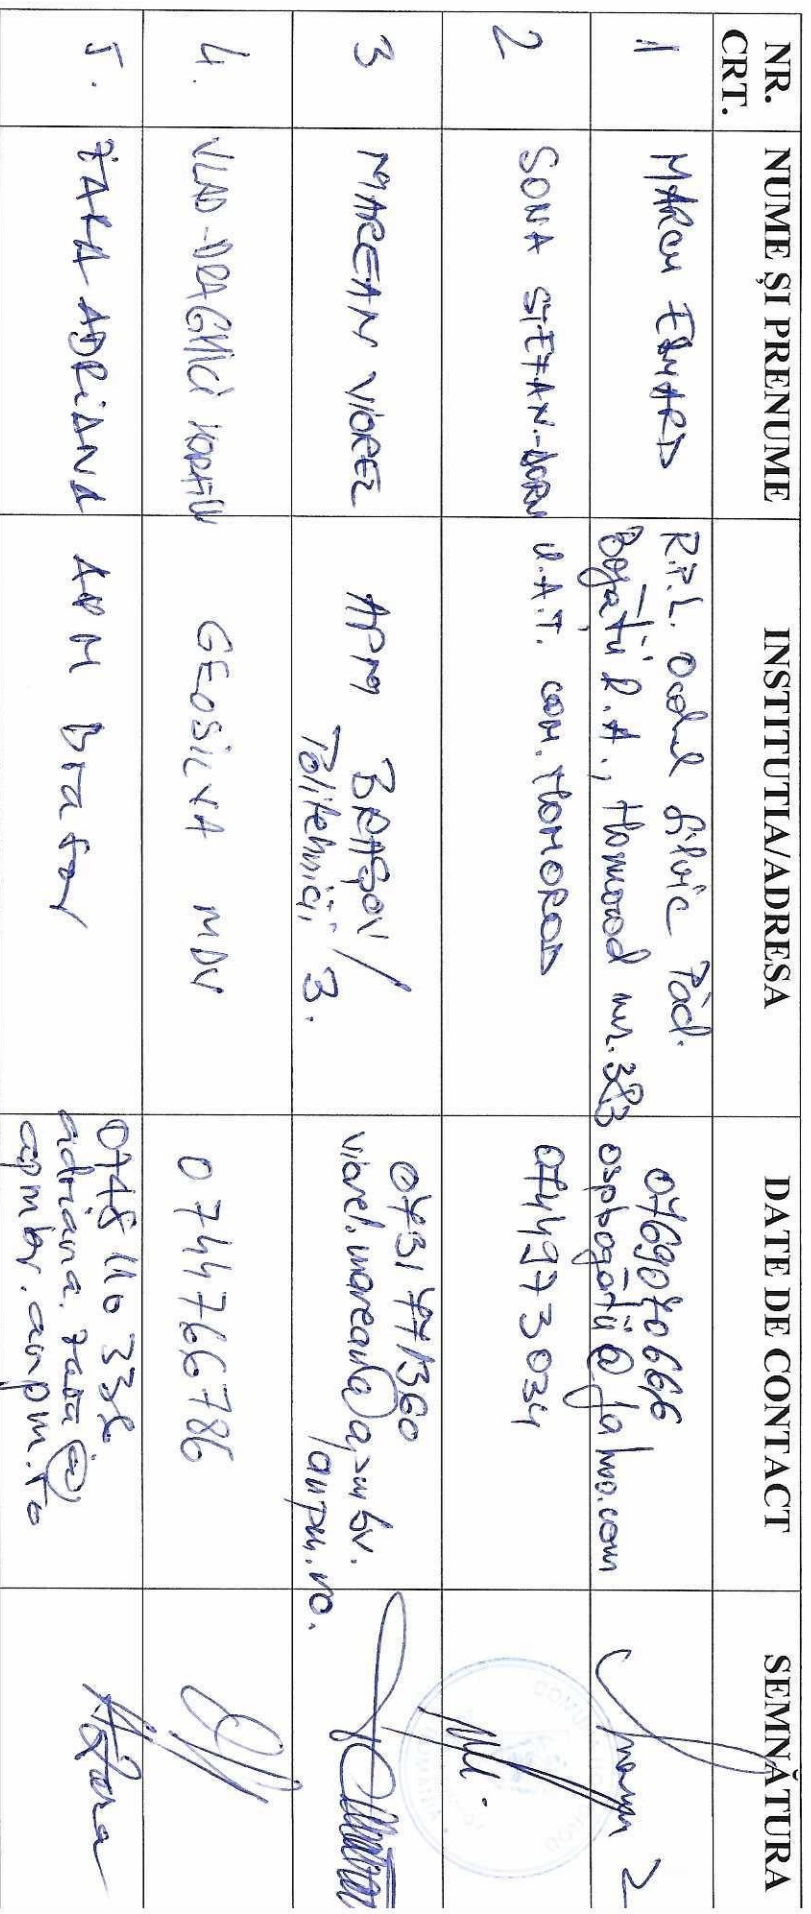 NR. CRT.
NUME ȘI PRENUME
INSTITUTIA/ADRESA
DATE DE CONTACT
SEMNĂTURA
1
MARCU EDUARD
R.P.L. Ocolul Silvic Păd.
Bogătii R.A., Homorod nr. 383
0769070666
ospbogatii@yahoo.com
2
SONA ȘTEFAN-DORU
U.A.T. com. HOMOROD
0744973034
3
MAREAN VIOREL
APM BRAȘOV/
Politehnicii 3.
0731771360
viorel.marean@apmbv.
anpm.ro.
4.
VLAD-DRAGHICI HORATIU
GEOSILVA MDV
0744766786
5.
ZARA ADRIANA
APM Brasov
0748 110 338
adriana.zara@
apmbv.anpm.ro